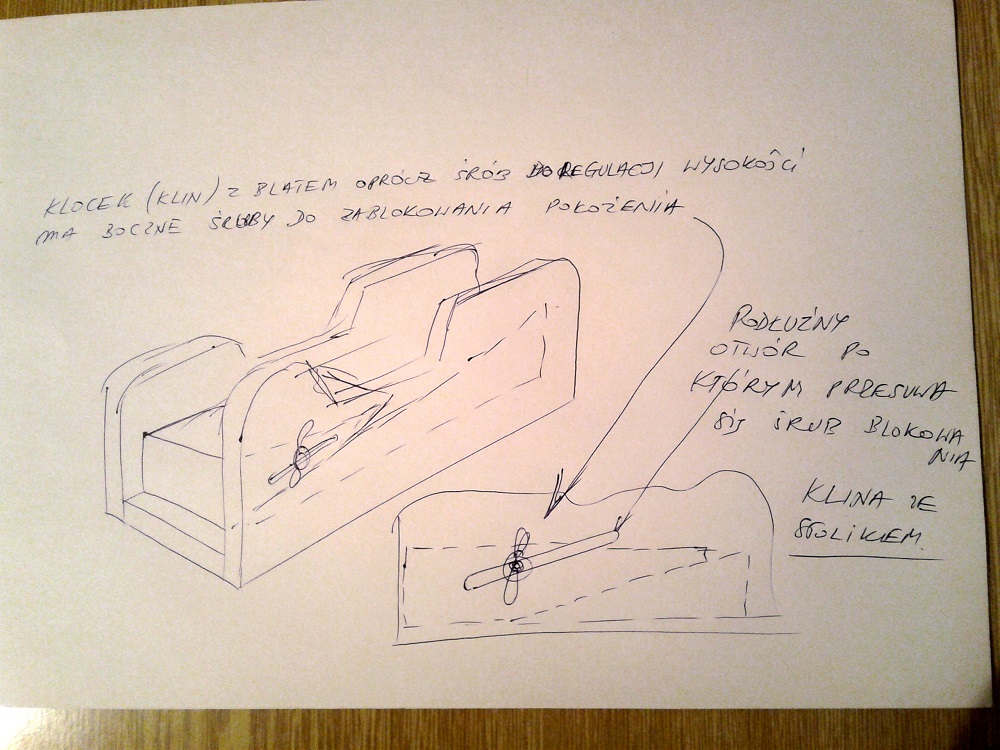 KLOCEK (KLIN) Z BLATEM OPRÓCZ ŚRÓB DO REGULACJI WYSOKOŚCI
MA BOCZNE ŚRUBY DO ZABLOKOWANIA POŁOŻENIA
PODŁUŻNY
OTWÓR PO
KTÓRYM PRZESUWA
SIĘ ŚRUB BLOKOWA
NIA
KLINA ZE
STOLIKIEM.